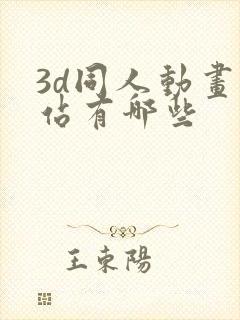 3d同人動畫
佔有哪些
王東陽